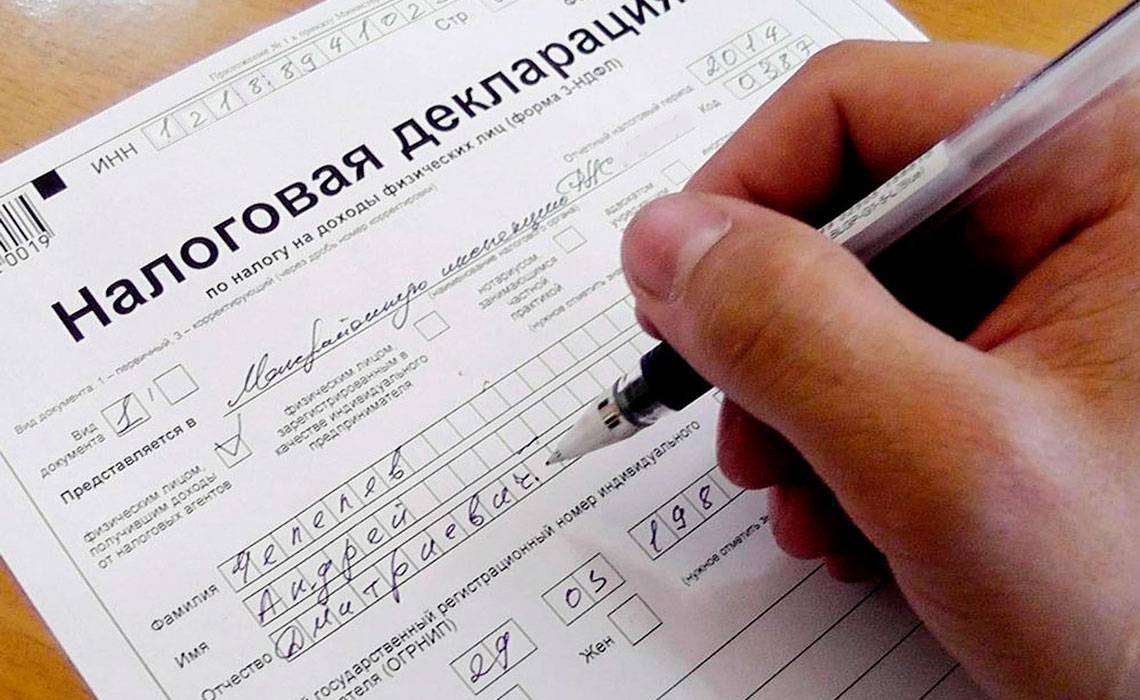 Приложение № 1 к приказу Министерства
ИНН 1 2 1 8 1 8 9 4 1 0 2 2 Стр
Налоговая декларация
по налогу на доходы физических лиц (форма 3-НДФЛ)
0019
Вид документа: 1 – первичный, 3 – корректирующий (через дробь номер корректировки)
Отчетный налоговый период 2 0 1 4
Код 0 3 8 7
Вид документа 1 /
Межрайонную инспекцию ФНС
(наименование налогового органа)
Представляется в
физическим лицом, получившим доходы от налоговых агентов
физическим лицом, зарегистрированным в качестве индивидуального предпринимателя
нотариусом занимающимся частной практикой
адвокатом
(нужное отметить
Фамилия Чепелев
Имя Андрей
Отчество Дмитриевич
государственный регистрационный номер индивидуального
(ОГРНИП)
29 03 198
Жен
(нужное отметить